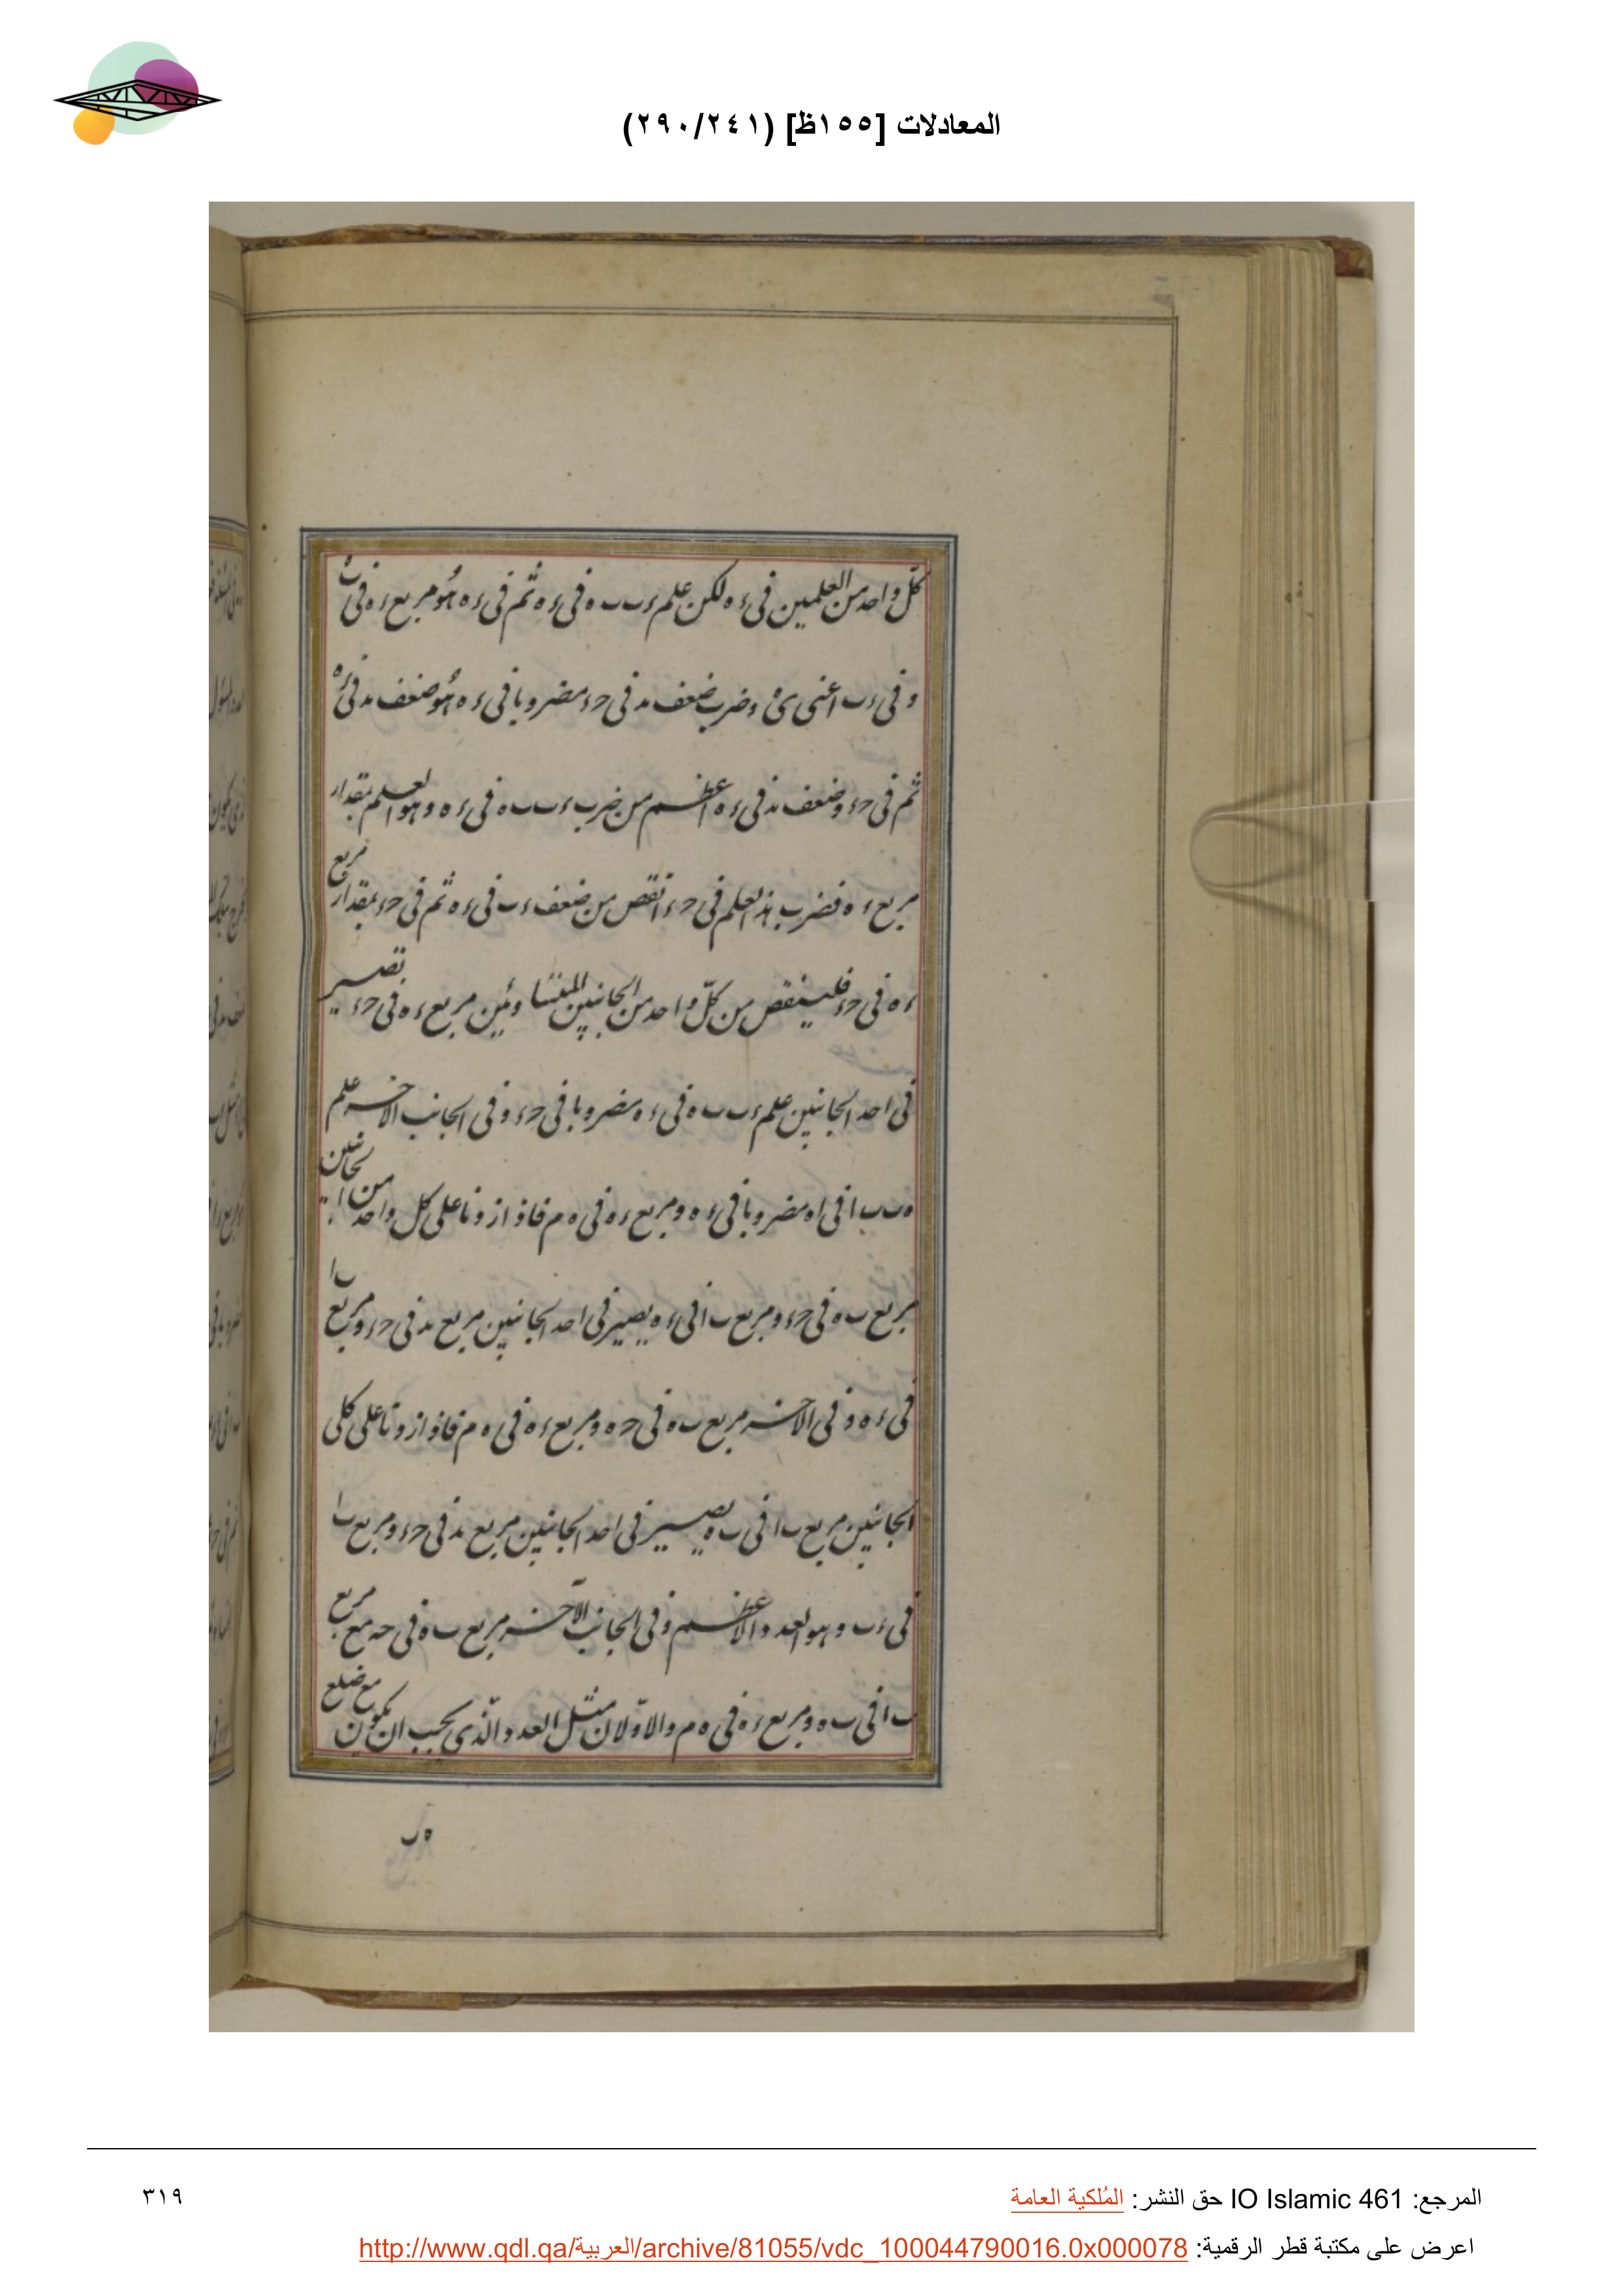 المعادلات [١٥٥ظ] (٢٩٠/٢٤١)
كلّ واحد من العلمين في ءه لكن علم ءب ب ه في ءه ثم في ءه هو مربع ءه في ب
وفي ءب اعنى ى ه وضرب ضعف ند في حء مضروبا في ءه هو ضعف ند في ءه
ثم في حء وضعف ند في ءه اعظم من ضرب ءب ب ه في ءه وهو العلم بمقدار
مربع ءه فضرب هذ العلم في حء انقص من ضعف ءب في ءه ثم في حء بمقدار مربع
ءه في حء فلينقص من كلّ واحد من الجانبين المتساويين مربع ءه في حء يصير
في احد الجانبين علم ءب ب ه في ءه مضروبا في حء وفي الجانب الاخر علم
ه ب ب ا في اه مضروبا في ءه ومربع ءه في ه م فاذ ازدنا على كل واحد من الجانبين
مربع ب ه في حء ومربع ب ا في ءه يصير في احد الجانبين مربع ند في حء ومربع ب ا
في ءه وفي الاخر مربع ب ه في حه ومربع ءه في ه م فاذ ازدنا على كلى
الجانبين مربع ب ا في ب ه يصير في احد الجانبين مربع ند في حء ومربع ب ا
في ءب وهو العدد الاعظم وفي الجانب الآخر مربع ب ه في حه مع مربع
ب ا في ب ه ومربع ءه في ه م والاوّلان مثل العدد الّذى يجب ان يكون مع ضلع
ه ب
المرجع: IO Islamic 461 حق النشر: المُلكية العامة
٣١٩
اعرض على مكتبة قطر الرقمية: http://www.qdl.qa/العربية/archive/81055/vdc_100044790016.0x000078